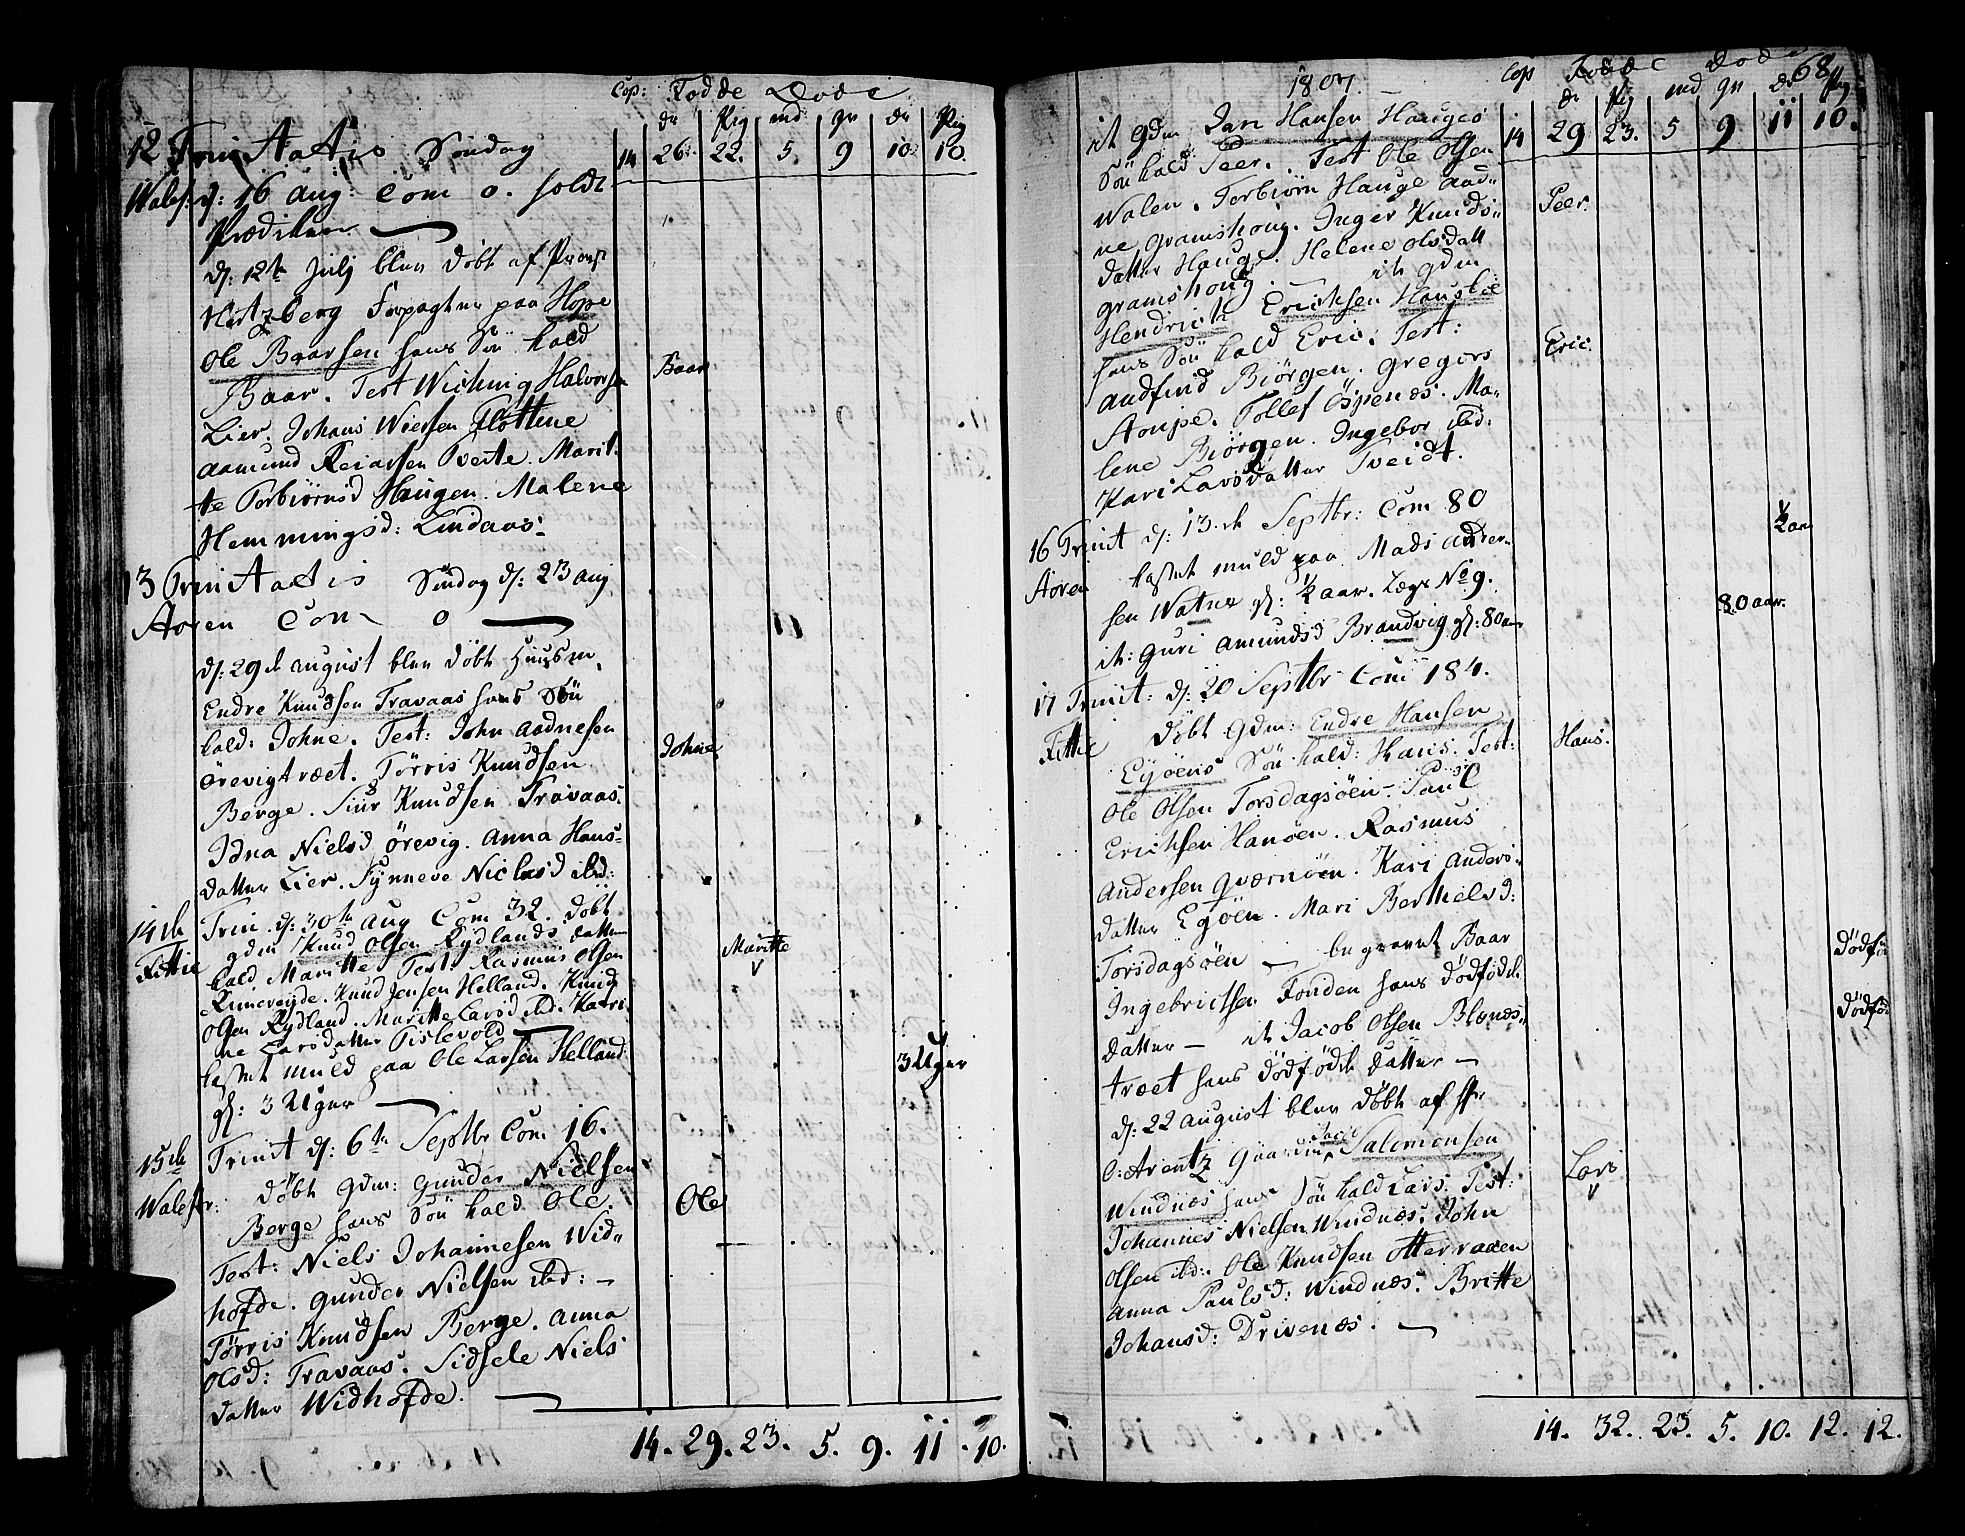 Cop: Fødde Døde
dr Pig md qv dr Pig
12 Trinitatis Søndag 14 26. 22. 5. 9 10 10.
Walest. d: 16 Aug: Com 0. holdt
Prædiken
d: 12te Julj blev døbt af Provst
Hertzberg Forpagter paa Hope
Ole Baarsen hans Søn kald
Baar. Test Wiching Halvorsen Baar
Lier. Johans Wiersen Flöttene
Aamund Reiarsen Tveite. Marit-
te Torbiörnsd Haugen. Malene
Hemmingsd: Lindaas.
13 Trinitatis Søndag d: 23 Aug
Aoren Com 0
d: 29de August blev døbt Huusm.
Endre Knudsen Travaas hans Søn
kald: Johne. Test: John Aadnesen Johne
Örevigtræet. Törris Knudsen
Berge. Siur Knudsen Travaas.
Idna Nielsd Örevig. Anna Hans-
datter Lier. Synneve Niclasd ibd:
14de Trin. d: 30te Aug Com 32. Døbt
Fittie gdm Knud Olsen Rydlands datter Maritte
kald Maritte. Test: Rasmus Olsen
Rimereyde. Knud Jensen Helland. Knud
Olsen Rydland. Maritte Larsd ibd. Katri-
ne Larsdatter Tislevold
kastet muld paa Ole Larsen Helland 3 Uger
gl: 3 Uger
15de Trinit d: 6te Septbr Com 16.
Walestr. Døbt gdm: Gunder Nielsen
Berge hans Søn kald Ole. Ole
Test: Niels Johannesen Wid-
hofde. Gunder Nielsen ibd:
Törris Knudsen Berge. Anna
Olsd: Travaas. Sidsele Niels
datter Widhofde.
14. 29. 23. 5. 9. 11. 10.
1807. Cop Fødde Døde 68
dr Pig md qv dr Pig
it gdm Jan Hansen Haugeö 14 29 23. 5 9 11 10.
Sön kald Peer. Test Ole Olsen
Walen. Torbiörn Hauge Aad- Peer.
ne Gramshoug. Inger Knuds-
datter Hauge. Helene Olsdatt
Gramshoug. it gdm
Hendrich Erichsen Hauskie
hans Sön kald Eric. Test: Eric.
Audfind Biörgen. Gregers
Stoupe. Tollef Öspenæs. Ma-
lene Biörgen. Ingebor ibd.
Kari Larsdatter Tveidt.
16 Trinit d: 13de Septbr: Com 80
Aoren kastet muld paa Mads Ander- ½ aar
sen Watne gl: ½ aar. Legs No 9.
it: Guri Amundsd Brandvig gl: 80 aar 80 aar.
17 Trinit: d: 20 Septbr Com 184.
Fittie Døbt gdm: Endre Hansen
Eyöens Sön kald: Hans. Test: Hans.
Ole Olsen Torsdagsöen. Paul
Erichsen Hanöen. Rasmus
Andersen Qværnöen. Kari Anders-
datter Egöen. Mari Berthelsd:
Torsdagsöen — begravet Baar
Ingebrictsen Fonden hans dödfödde Dödfö
datter — it Jacob Olsen Blænes- Dödfö
træet hans dödfödde datter —
d: 22 August blev døbt af Hr:
C: Arentz Gaardm Jacob Salomonsen
Windnæs hans Sön kald Lars. Test: Lars
Johannes Nielsen Windnæs. John
Olsen ibd:. Ole Knudsen Otterraaen
Anna Paulsd: Windnæs. Britte
Johansd: Drivenæs.
14. 32. 23. 5. 10. 12. 12.